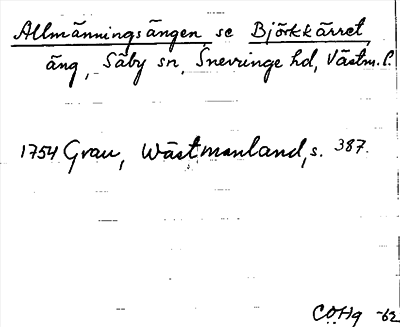 Allmänningsängen se Björkkärret,
äng, Säby sn, Snevringe hd, Västm. l.
1754 Grau, Wästmanland, s. 387.
COHq -62